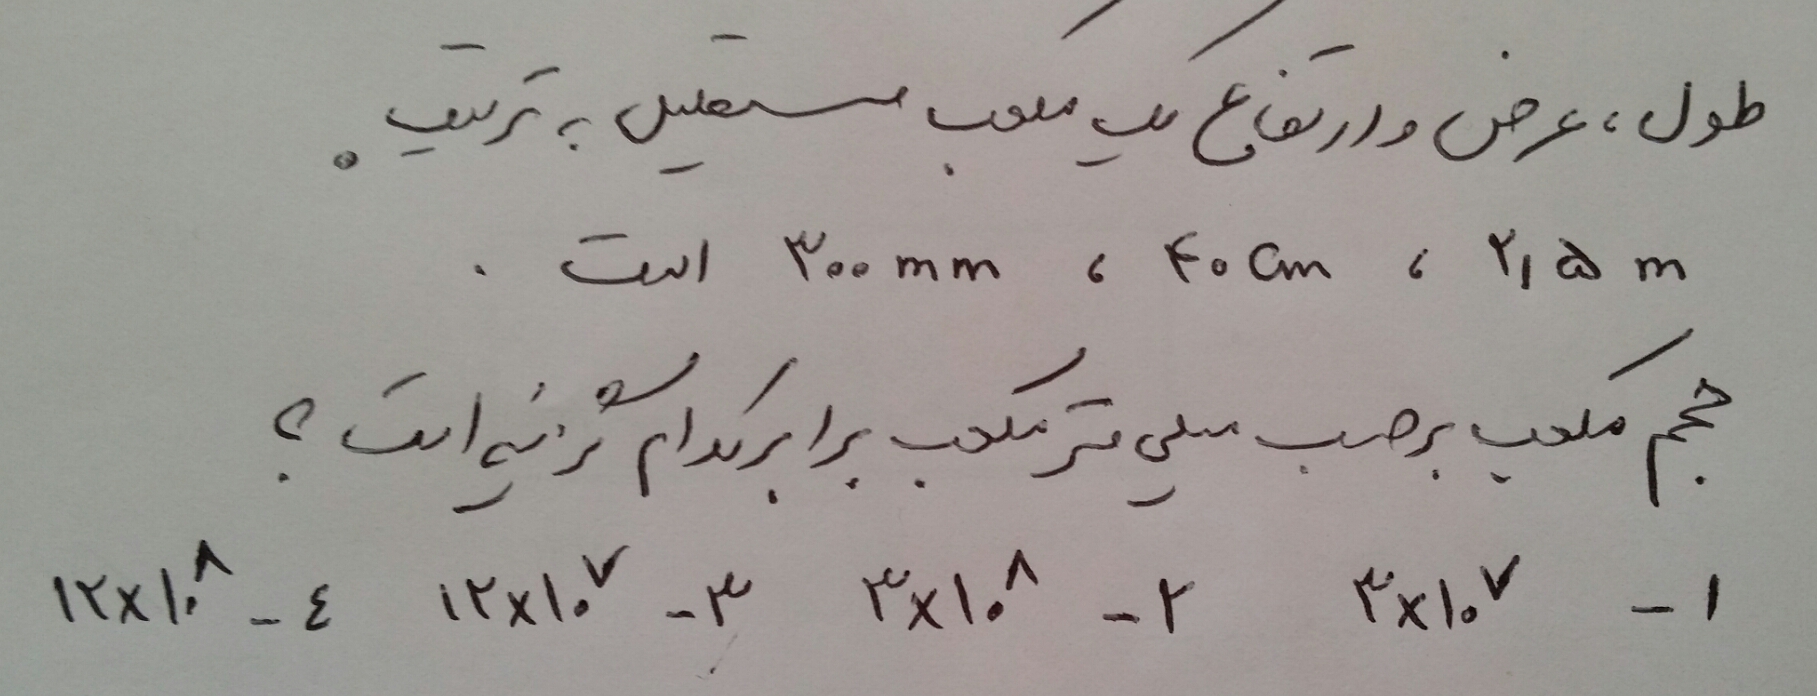 طول، عرض و ارتفاع یک مکعب مستطیل به ترتیب
۲٫۵ m ، ۴۰ cm ، ۳۰۰ mm است .
حجم مکعب برحسب میلی متر مکعب برابر کدام گزینه است ؟
۱ - ۳×۱۰^۷ ۲ - ۳×۱۰^۸ ۳ - ۱۲×۱۰^۷ ٤ - ۱۲×۱۰^۸